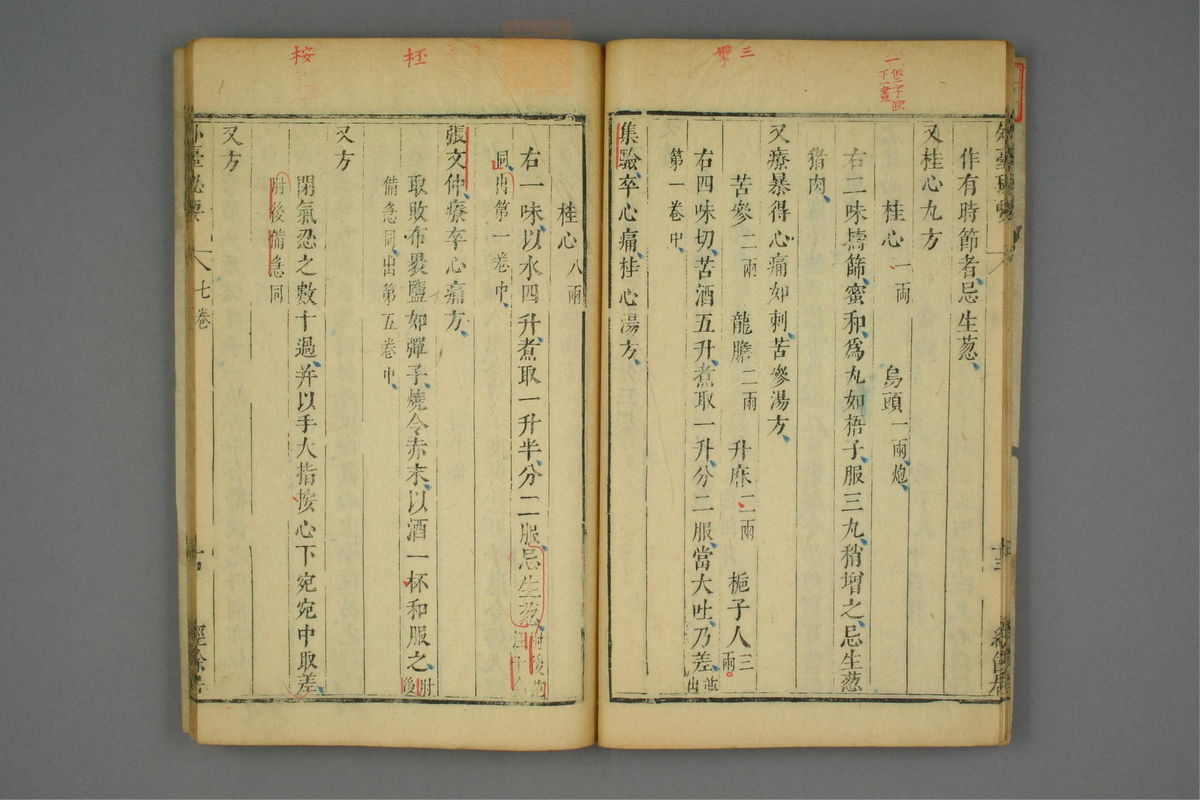 作有時節者忌生葱
又桂心九方
桂心一兩 烏頭一兩炮
右二味擣篩蜜和爲丸如梧子服三丸稍增之忌生葱
猪肉
又療暴得心痛如刺苦參湯方
苦參二兩 龍膽二兩 升麻二兩 梔子人三兩
右四味切苦酒五升煮取一升分二服當大吐乃差並出
第一卷中
集驗卒心痛桂心湯方
桂心八兩
右一味以水四升煮取一升半分二服忌生葱肘後
同出第一卷中
張文仲療卒心痛方
取敗布裹鹽如彈子燒令赤末以酒一杯和服之肘後
備急同出第五卷中
又方
閉氣忍之數十過并以手大指按心下宛宛中取差
肘後備急同
又方
七卷
三
桉